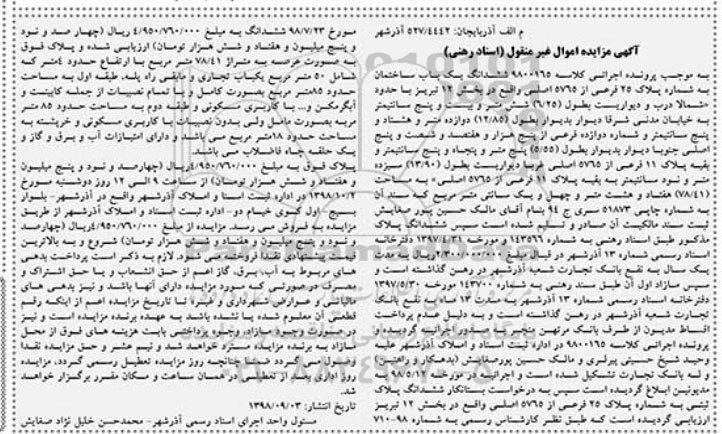 م الف آذربایجان: ۵۲۷/۴۴۴۲ آذرشهر
آگهی مزایده اموال غیر منقول (اسناد رهنی)
به موجب پرونده اجرائی کلاسه ۹۸۰۰۱۶۵ ششدانگ یک باب ساختمان
به شماره پلاک ۲۵ فرعی از ۵۷۶۵ اصلی واقع در بخش ۱۲ تبریز با حدود
«شمالا درب و دیواریست بطول (۶/۲۵) شش متر و بیست و پنج سانتیمتر
به خیابان مدنی شرقا دیوار بدیوار بطول (۱۲/۸۵) دوازده متر و هشتاد و
پنج سانتیمتر و شماره دوازده فرعی از پنج هزار و هفتصد و شصت و پنج
اصلی جنوبا دیوار بدیوار بطول (۵/۵۵) پنج متر و پنجاه و پنج سانتیمتر و
بقیه پلاک ۱۱ فرعی از ۵۷۶۵ اصلی غربا دیواریست بطول (۱۳/۹۰) سیزده
متر و نود سانتیمتر به بقیه پلاک ۱۱ فرعی از ۵۷۶۵ اصلی» به مساحت
(۷۸/۴۱) هفتاد و هشت متر و چهل و یک سانتی متر مربع که سند آن
به شماره چاپی ۵۱۸۷۳ سری ج ۹۴ بنام آقای مالک حسین پور صفایش
ثبت سند مالکیت آن صادر و تسلیم شده است سپس ششدانگ پلاک
مذکور طبق اسناد رهنی به شماره ۱۴۳۵۶۶ و مورخه ۱۳۹۷/۳/۲۱ دفترخانه
اسناد رسمی شماره ۱۳ آذرشهر در قبال مبلغ ریال به مدت
یک سال به نفع بانک تجارت شعبه آذرشهر در رهن گذاشته است و
سپس مازاد اول آن طبق سند رهنی به شماره ۱۴۳۷۰۰ مورخه ۱۳۹۷/۵/۳۰
دفترخانه اسناد رسمی شماره ۱۳ آذرشهر به مدت ۱۳ سال به نفع بانک
تجارت شعبه آذرشهر در رهن گذاشته است و به دلیل عدم پرداخت
اقساط مدیون از طرف بانک مرتهن منجر به صدور اجرائیه گردیده و
پرونده اجرائی کلاسه ۹۸۰۰۱۶۵ در اداره ثبت اسناد و املاک آذرشهر علیه
وحید شیخ حسینی پیرلری و مالک حسین پورصفایش (بدهکار و راهن)
و له بانک تجارت تشکیل شده است و اجرائیه در مورخه ۹۸/۵/۱۲ به
مدیونین ابلاغ گردیده است سپس به درخواست بستانکار ششدانگ پلاک
ثبتی به شماره پلاک ۲۵ فرعی از ۵۷۶۵ اصلی واقع در بخش ۱۲ تبریز
ارزیابی گردیده است که طبق نظر کارشناس رسمی به شماره ۹۸-۷۱۰
مورخ ۹۸/۷/۲۳ ششدانگ به مبلغ ۴/۹۵۰/۷۶۰/۰۰۰ ریال (چهار صد و نود
و پنج میلیون و هفتاد و شش هزار تومان) ارزیابی شده و پلاک فوق
به صورت عرصه به متراژ ۷۸/۴۱ متر مربع با ارتفاع حدود ۴متر که
شامل ۵۰ متر مربع یکباب تجاری و مابقی راه پله، طبقه اول به مساحت
حدود ۸۵متر مربع بصورت کامل و با تمام نصبیات از جمله کابینت و
آبگرمکن و... با کاربری مسکونی و طبقه دوم به مساحت حدود ۸۵ متر
مربع بصورت کامل ولی بدون نصبیات با کاربری مسکونی و خرپشته به
مساحت حدود ۱۸متر مربع می باشد و دارای امتیازات آب و برق و گاز و
یک حلقه چاه فاضلاب می باشد.
پلاک فوق به مبلغ ۴/۹۵۰/۷۶۰/۰۰۰ریال (چهارصد و نود و پنج میلیون
و هفتاد و شش هزار تومان) از ساعت ۹ الی ۱۲ روز دوشنبه مورخ
۱۳۹۸/۱۰/۲ در اداره ثبت اسناد و املاک آذرشهر واقع در آذرشهر- بلوار
بسیج- اول کوی خیام دو- اداره ثبت اسناد و املاک آذرشهر از طریق
مزایده به فروش می رسد. مزایده از مبلغ ۴/۹۵۰/۷۶۰/۰۰۰ریال (چهارصد
و نود و پنج میلیون و هفتاد و شش هزار تومان) شروع و به بالاترین
قیمت پیشنهادی نقدا فروخته می شود. لازم به ذکر است پرداخت بدهی
های مربوط به آب، برق، گاز اعم از حق انشعاب و یا حق اشتراک و
مصرف در صورتی که مورد مزایده دارای آنها باشد و نیز بدهی های
مالیاتی و عوارض شهرداری و غیره تا تاریخ مزایده اعم از اینکه رقم
قطعی آن معلوم شده یا نشده باشد به عهده برنده مزایده است و نیز
در صورت وجود مازاد، وجوه پرداختی بابت هزینه های فوق از محل
مازاد به برنده مزایده مسترد خواهد شد و نیم عشر و حق مزایده نقدا
وصول می گردد ضمنا چنانچه روز مزایده تعطیل رسمی گردد، مزایده
روز اداری بعد از تعطیلی در همان ساعت و مکان مقرر برگزار خواهد
شد.
تاریخ انتشار: ۱۳۹۸/۰۹/۰۳
مسئول واحد اجرای اسناد رسمی آذرشهر- محمدحسن خلیل نژاد صفایش